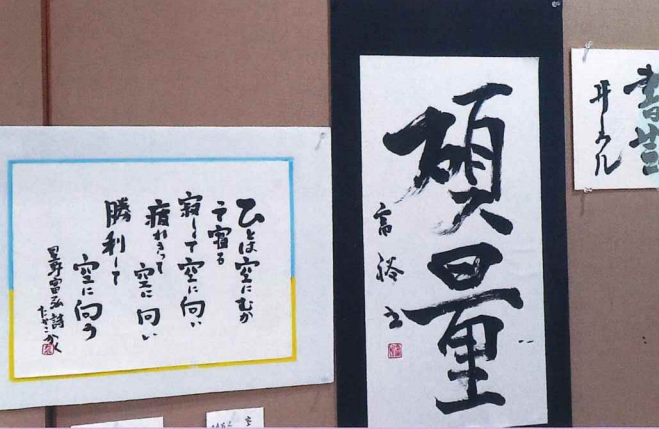 ひとは空にむか
って寝る
寂しくて空に向い
疲れきって
空に向い
勝利して
空に向う
星野富弘 詩
碩量